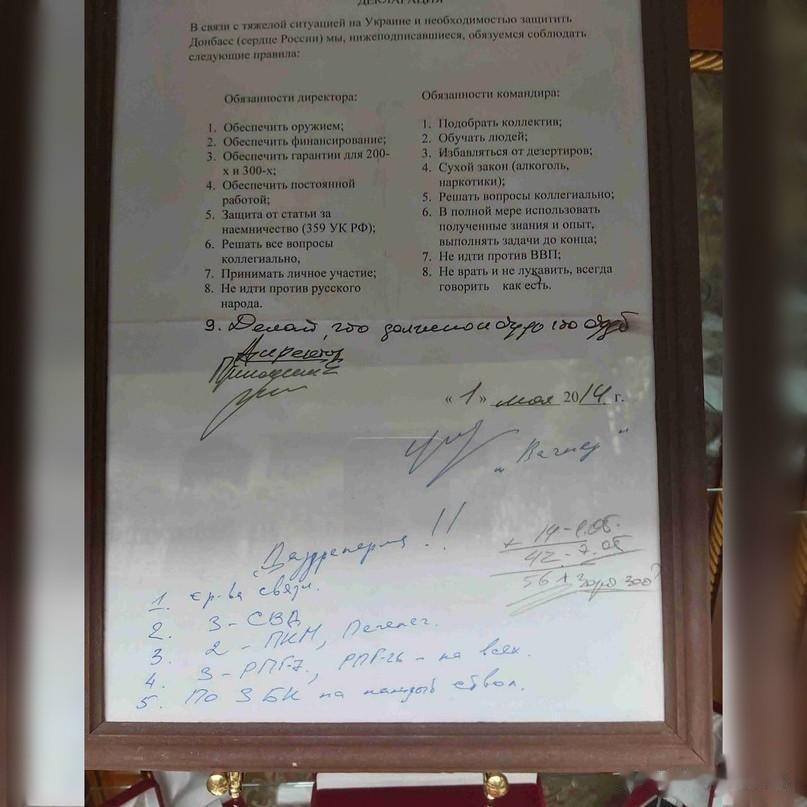 ДЕКЛАРАЦИЯ
В связи с тяжелой ситуацией на Украине и необходимостью защитить
Донбасс (сердце России) мы, нижеподписавшиеся, обязуемся соблюдать
следующие правила:
Обязанности директора:
1. Обеспечить оружием;
2. Обеспечить финансирование;
3. Обеспечить гарантии для 200-
х и 300-х;
4. Обеспечить постоянной
работой;
5. Защита от статьи за
наемничество (359 УК РФ);
6. Решать все вопросы
коллегиально,
7. Принимать личное участие;
8. Не идти против русского
народа.
Обязанности командира:
1. Подобрать коллектив;
2. Обучать людей;
3. Избавляться от дезертиров;
4. Сухой закон (алкоголь,
наркотики);
5. Решать вопросы коллегиально;
6. В полной мере использовать
полученные знания и опыт,
выполнять задачи до конца;
7. Не идти против ВВП;
8. Не врать и не лукавить, всегда
говорить как есть.
9. Делай, что должно и будь что будет
Директор
Пригожин Е
« 1 » мая 2014 г.
„Вагнер"
!!
14 -
42 - 7.05
56
1. ср-ва связи.
2. 3 - СВД
3. 2 - ПКМ, Печенег.
4. 3 - РПГ-7, РПГ-26 - на всех.
5. По 3 БК на каждый ствол.